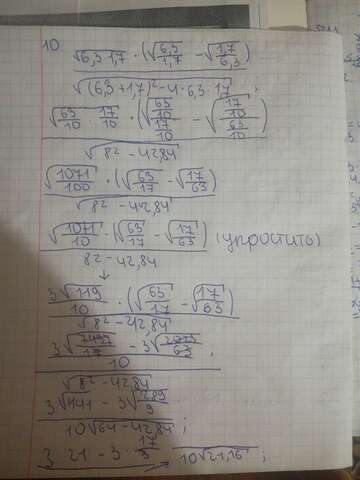 10
√6,3·1,7 · (√6,3/1,7 − √1,7/6,3)
√(6,3+1,7)² − 4·6,3·1,7 ;
√63/10 · 17/10 · (√(63/10)/(17/10) − √(17/10)/(63/10))
√8² − 42,84
√1071/100 · (√63/17 − √17/63)
√8² − 42,84
√1071/10 · (√63/17 − √17/63) (упростить)
8² − 42,84
↓
3√119/10 · (√63/17 − √17/63)
√8² − 42,84
10
√8² − 42,84
3√441 − 3√289/9
10√64 − 42,84 ;
3·21 − 3·17/3
10√21,16 ;